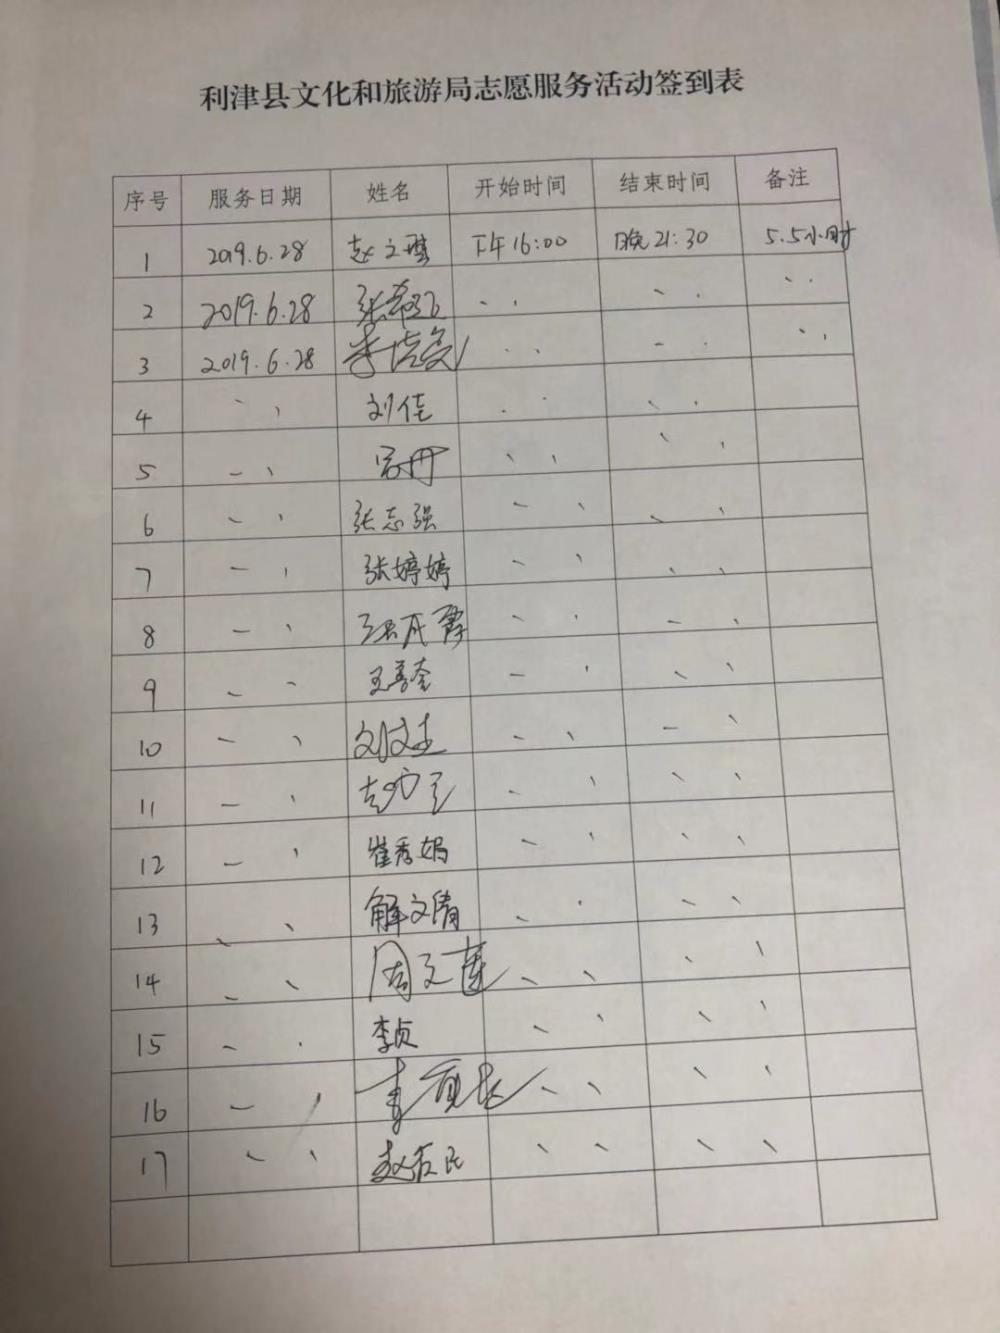 利津县文化和旅游局志愿服务活动签到表
序号 服务日期 姓名 开始时间 结束时间 备注
1 2019.6.28 赵文琪 下午16:00 晚21:30 5.5小时
2 2019.6.28 张
3 2019.6.28 李
4 刘佳
5
6 张志强
7 张婷婷
8
9 王
10 刘
11
12 崔秀娟
13 解文倩
14 周文莲
15 李贞
16
17 赵